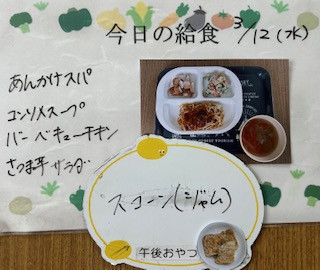 今日の給食 3/12(水)
あんかけスパ
コンソメスープ
バーベキューチキン
さつま芋サラダ
スコーン(ジャム)
午後おやつ